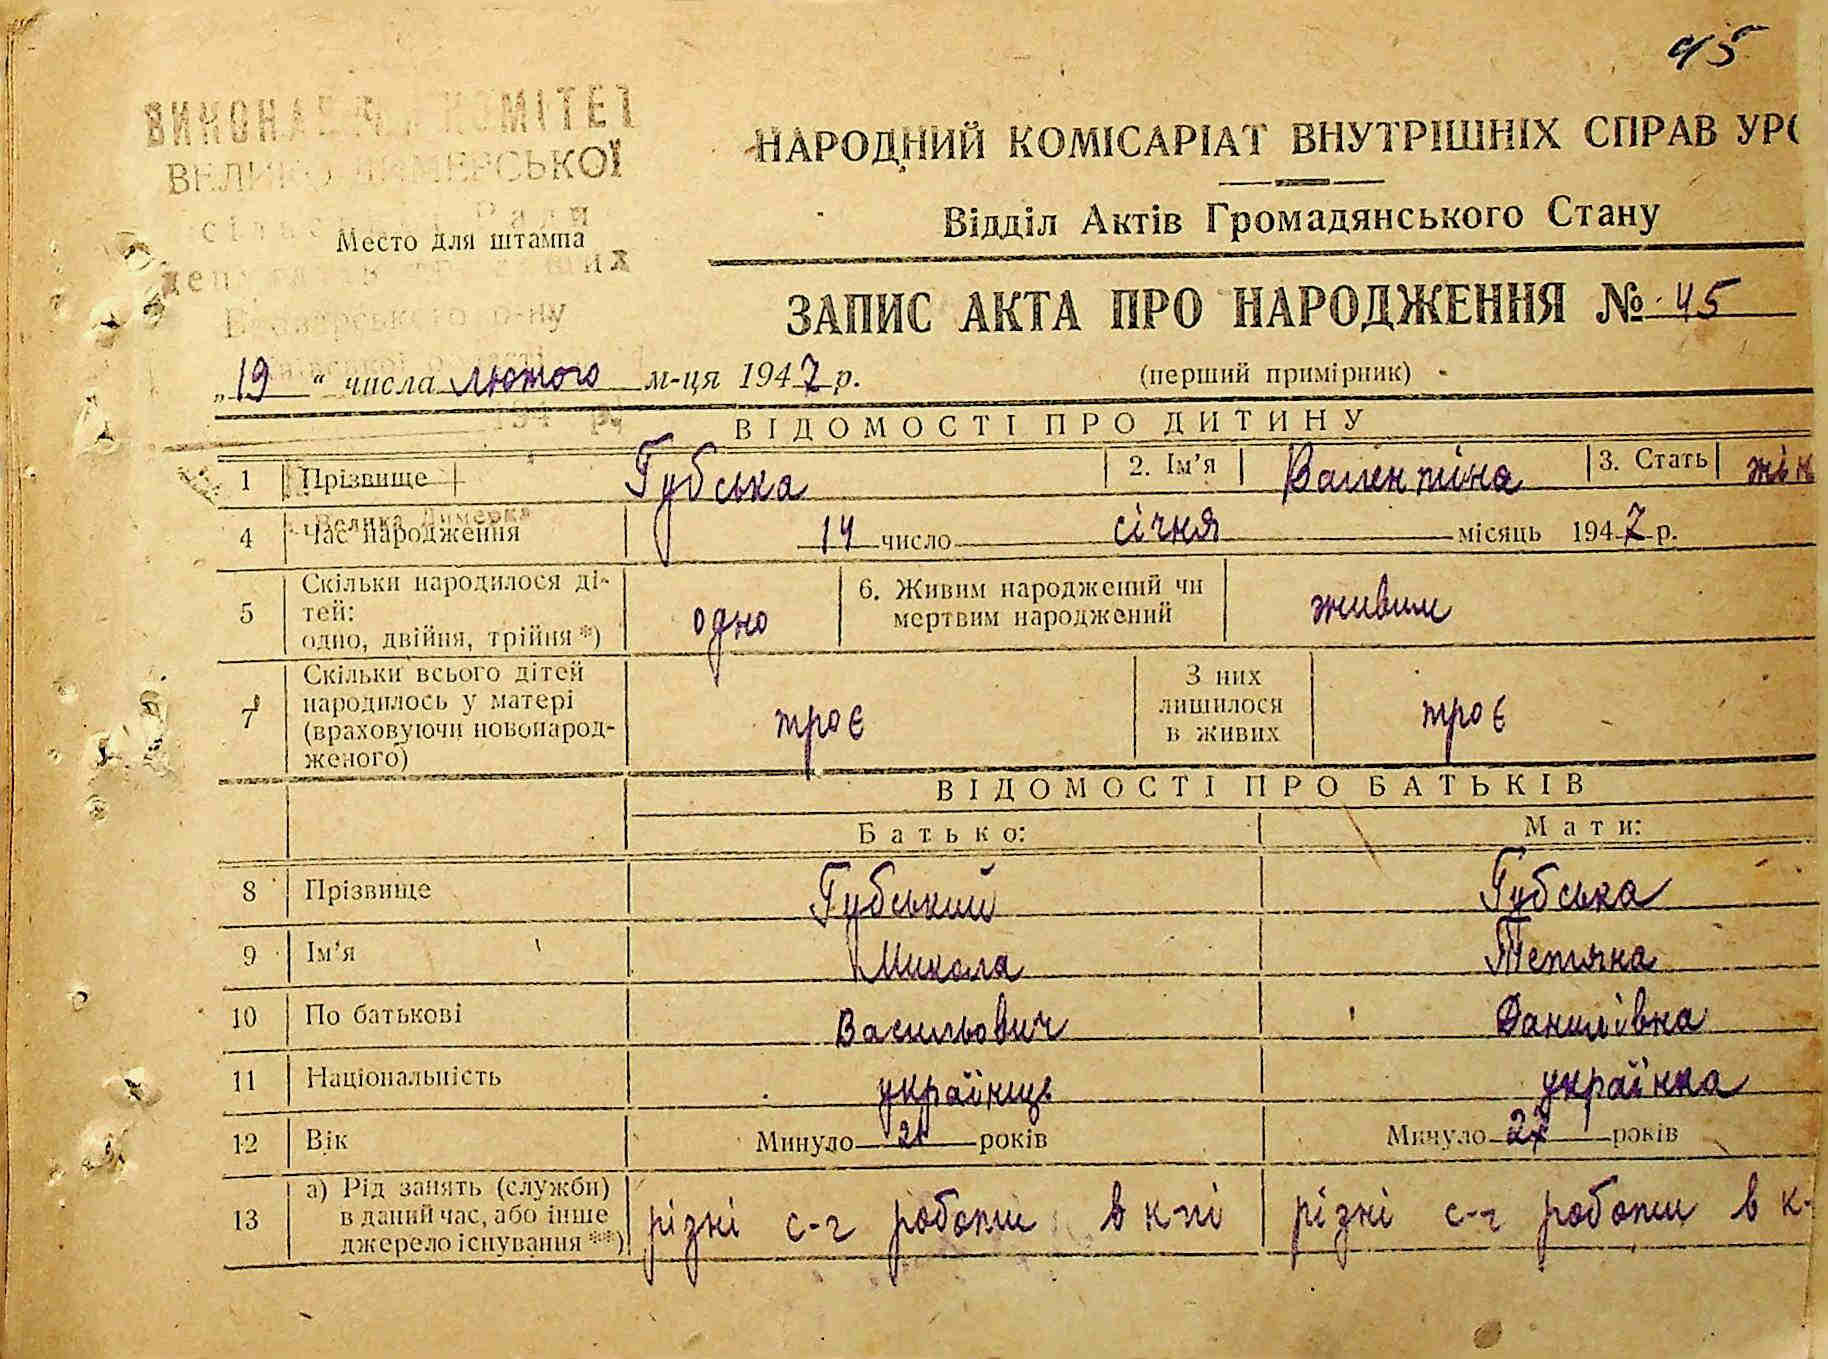 45
ВИКОНА КОМІТЕТ
ВЕЛИКО ДИМЕРСЬКОЇ
Ради
Место для штампа
Броварського р-ну
НАРОДНИЙ КОМІСАРІАТ ВНУТРІШНІХ СПРАВ УРС
Відділ Актів Громадянського Стану
ЗАПИС АКТА ПРО НАРОДЖЕННЯ № 45
„19 “ числа лютого м-ця 1947 р.
(перший примірник)
194 р.
ВІДОМОСТІ ПРО ДИТИНУ
1 Прізвище Губська 2. Ім'я Валентіна 3. Стать жін
с. Велика Димерка
4 Час народження 14 число січня місяць 1947 р.
5 Скільки народилося ді-
тей:
одно, двійня, трійня *) одно 6. Живим народжений чи
мертвим народжений живим
7 Скільки всього дітей
народилось у матері
(враховуючи новонарод-
женого) троє З них
лишилося
в живих троє
ВІДОМОСТІ ПРО БАТЬКІВ
Батько: Мати:
8 Прізвище Губський Губська
9 Ім'я Микола Тетяна
10 По батькові Васильович Данилівна
11 Національність українць українка
12 Вік Минуло років Минуло 27 років
13 а) Рід занять (служби)
в даний час, або інше
джерело існування **) різні с-г роботи в к-пі різні с-г роботи в к-